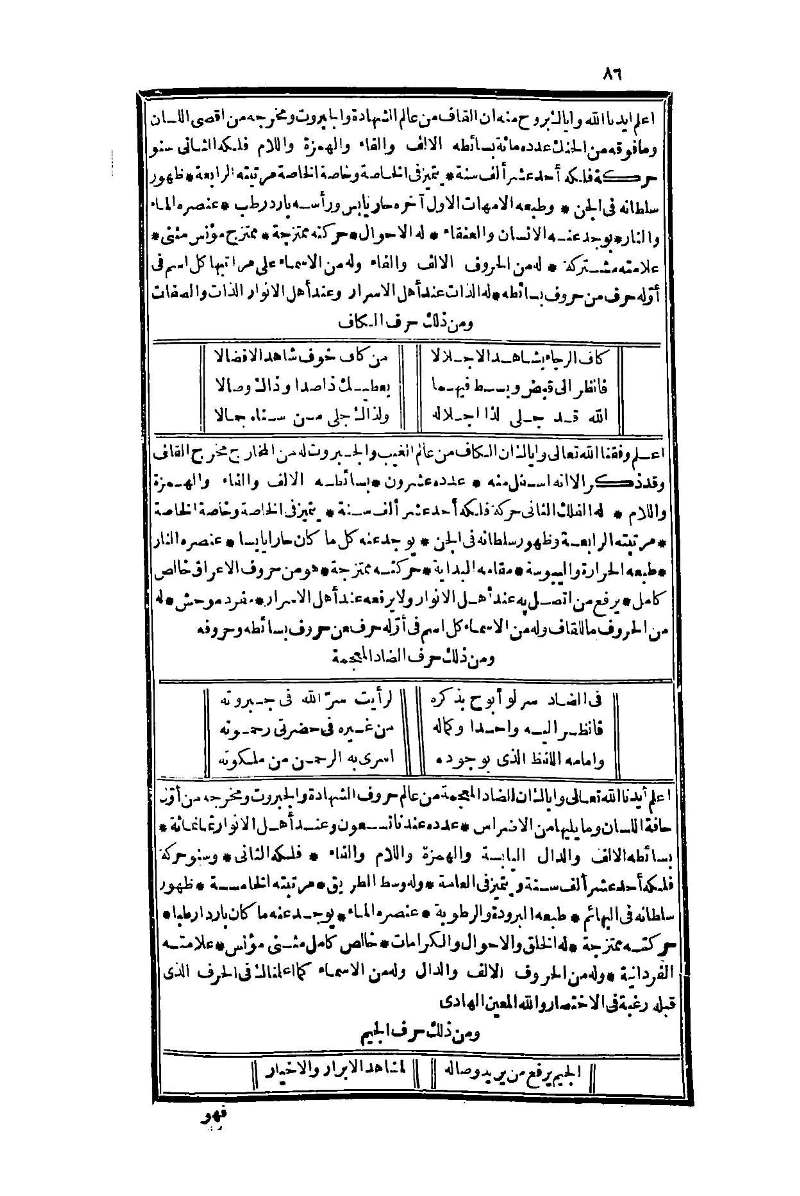 ٨٦
اعلم ايدنا الله واياك بروح منه ان القاف من عالم الشهادة والجبروت ومخرجه من اقصى اللسان
وما فوقه من الحنك عدده مائة بسائطه الالف والفاء والهمزة واللام فلكه الثانى سنو
حركة فلكه أحد عشر ألف سنة * يتميز فى الخاصة وخاصة الخاصة مرتبته الرابعة * ظهور
سلطانه فى الجن * وطبعه الامهات الاول آخره حار يابس ورأسه بارد رطب * عنصره الماء
والنار * يوجد عنه الانسان والعنقاء * له الاحوال * حركته ممتزجة * ممتزج مؤنس مثنى *
علامته مشتركة * له من الحروف الالف والفاء وله من الاسماء على مراتبها كل اسم فى
أوّله حرف من حروف بسائطه * له الذات عند أهل الاسرار وعند أهل الانوار الذات والصفات
ومن ذلك حرف الكاف
كاف الرجاء يشاهد الاجلالا من كاف خوف شاهد الافضالا
فانظر الى قبض وبسط فيهما يعطيك ذا صدا وذاك وصالا
الله قد جلى لذا اجلاله ولذاك جلى من سناه جمالا
اعلم وفقنا الله تعالى واياك ان الكاف من عالم الغيب والجبروت له من المخارج مخرج القاف
وقد ذكر الا انه اسفل منه * عدده عشرون * بسائطه الالف والفاء والهمزة
واللام * له الفلك الثانى حركة فلكه أحد عشر ألف سنة * يتميز فى الخاصة وخاصة الخاصة
* مرتبته الرابعة وظهور سلطانه فى الجن * يوجد عنه كل ما كان حارا يابسا * عنصره النار
* طبعه الحرارة واليبوسة * مقامه البداية * حركته ممتزجة * هو من حروف الاعراق خالص
كامل * يرفع من اتصل به عند أهل الانوار ولا يرفعه عند أهل الاسرار * مفرد موحش * له
من الحروف ما للقاف وله من الاسماء كل اسم فى أوّله حرف من حروف بسائطه وحروفه
ومن ذلك حرف الضاد المعجمة
فى الضاد سر لو أبوح بذكره لرأيت سرّ الله فى جبروته
فانظر اليه واحدا وكماله من غيره فى حضرتى رحموته
وامامه اللفظ الذى بوجوده اسرى به الرحمن من ملكوته
اعلم أيدنا الله تعالى واياك ان الضاد المعجمة من عالم حروف الشهادة والجبروت ومخرجه من أوّل
حافة اللسان وما يليها من الاضراس * عدده عندنا تسعون وعند أهل الانوار ثمانمائة *
بسائطه الالف والدال اليابسة والهمزة واللام والفاء * فلكه الثانى * وسنو حركة
فلكه أحد عشر ألف سنة ويتميز فى العامة * وله وسط الطريق * مرتبته الخامسة * ظهور
سلطانه فى البهائم * طبعه البرودة والرطوبة * عنصره الماء * يوجد عنه ما كان باردا رطبا *
حركته ممتزجة * له الخلق والاحوال والكرامات * خالص كامل مثنى مؤنس * علامته
الفردانية * وله من الحروف الالف والدال وله من الاسماء كما اعلمناك فى الحرف الذى
قبله رغبة فى الاختصار والله المعين الهادى
ومن ذلك حرف الجيم
الجيم يرفع من يريد وصاله لمشاهد الابرار والاخيار
فهو